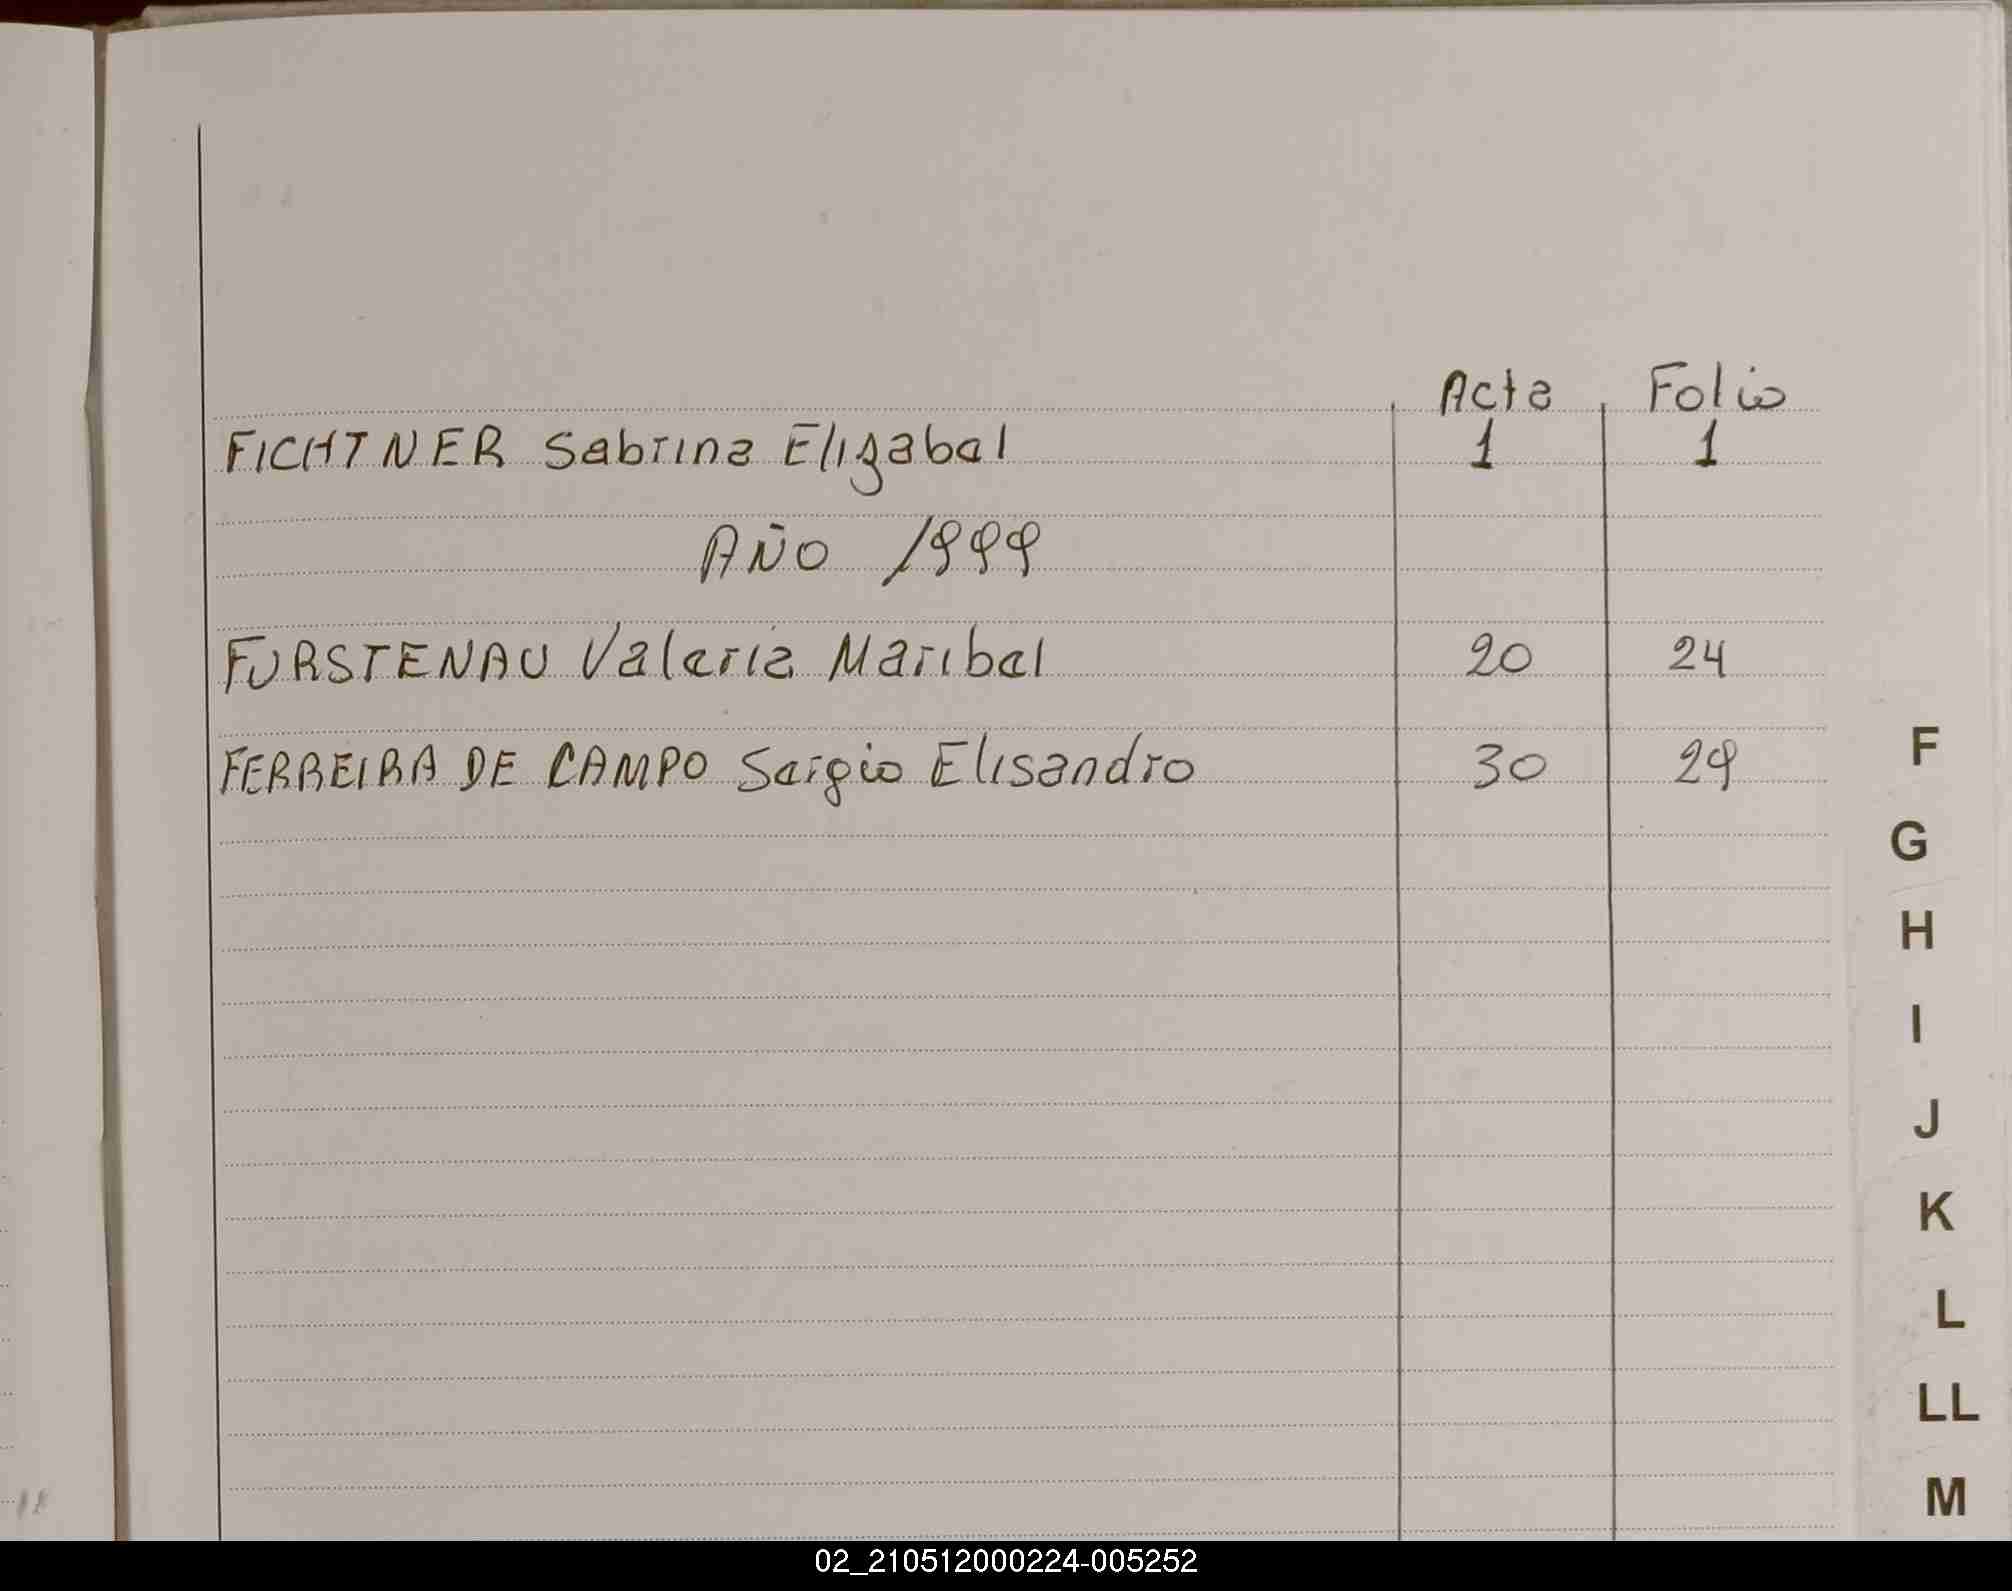 Acta Folio
FICHTNER Sabrina Elizabel 1 1
AÑO 1999
FURSTENAU Valeria Maribel 20 24
FERREIRA DE CAMPO Sergio Elisandro 30 29
F
G
H
I
J
K
L
LL
M
02_210512000224-005252